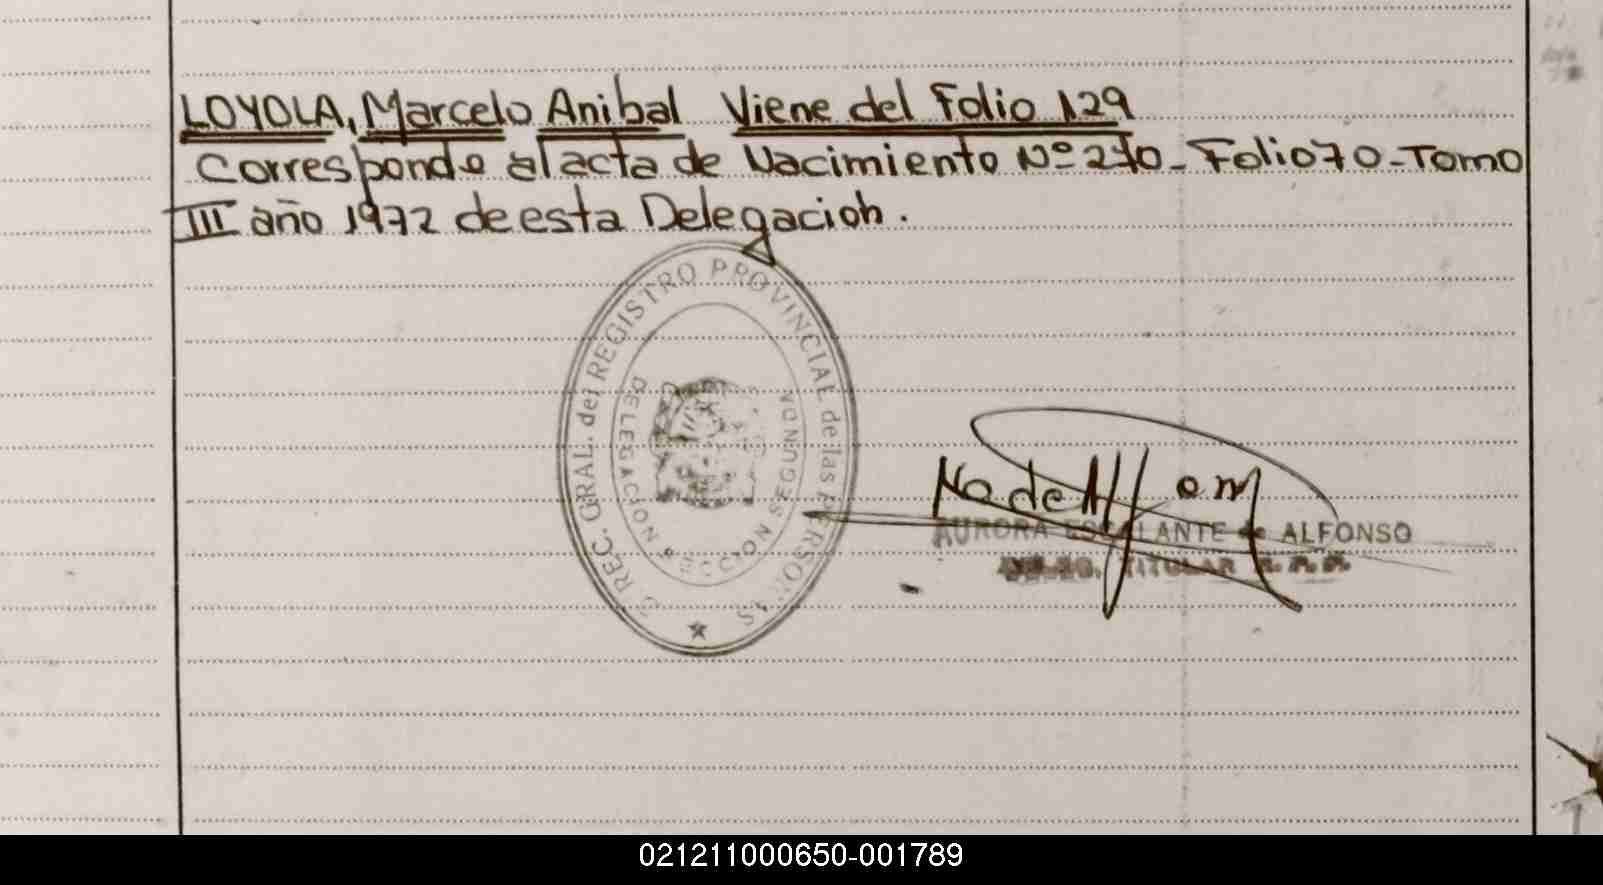 LOYOLA, Marcelo Anibal Viene del Folio 129
Corresponde al acta de Nacimiento Nº 270 - Folio 70 - Tomo
III año 1972 de esta Delegacion.
REC. GRAL. del REGISTRO PROVINCIAL de las PERSONAS
DELEGACION
AURORA ESCALANTE de ALFONSO
TITULAR
021211000650-001789